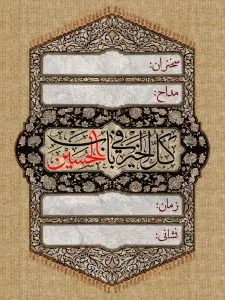 سخنران:
مداح:
کل الخیر فی باب الحسین
زمان:
نشانی: